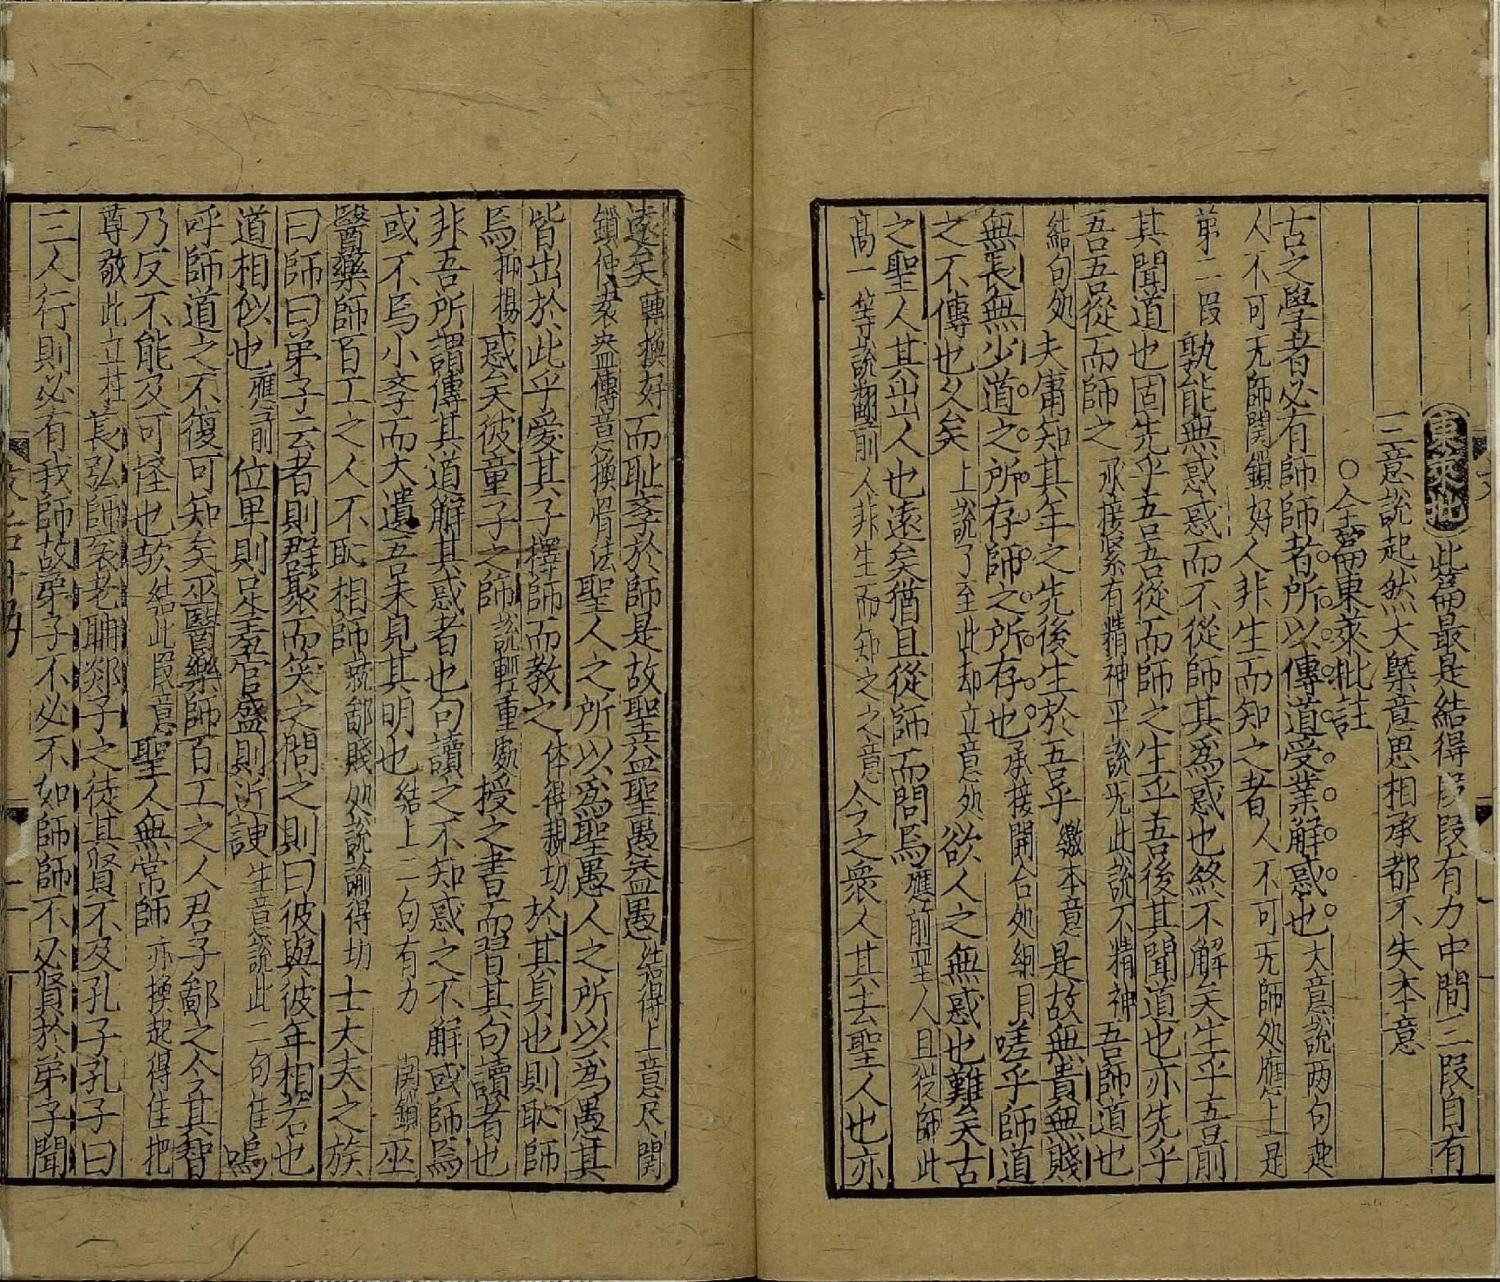 東萊批 此篇最是結得段段有力中間三段自有
三意說起然大槩意思相承都不失本意
○全篇東萊批註
古之學者必有師師者所以傳道受業解惑也大意說两句起
人不可无師関鎖好人非生而知之者人不可无師处應上是
第二段孰能無惑惑而不從師其爲惑也終不解矣生乎吾前
其聞道也固先乎吾吾從而師之生乎吾後其聞道也亦先乎
吾吾從而師之承接緊有精神平說无此說不精神吾師道也
結句处夫庸知其年之先後生於吾乎繳本意是故無貴無賤
無長無少道之所存師之所存也承接開合处綱目嗟乎師道
之不傳也久矣上說了至此却立意处欲人之無惑也難矣古
之聖人其出人也遠矣猶且從師而問焉應前聖人且從師此
高一等說翻前人非生而知之之意今之衆人其去聖人也亦
遠矣轉換好而耻斈於師是故聖益聖愚益愚結得上意尽関
鎖伸衮來益傳意換骨法聖人之所以爲聖愚人之所以爲愚其
皆出於此乎愛其子擇師而教之体得親切於其身也則恥師
焉抑揚惑矣彼童子之師說輕重處授之書而習其句讀者也
非吾所謂傳其道解其惑者也句讀之不知惑之不解或師焉
或不焉小斈而大遺吾未見其明也結上二句有力関鎖巫
醫藥師百工之人不恥相師就鄙賤处說論得切士大夫之族
曰師曰弟子云者則群聚而笑之問之則曰彼與彼年相若也
道相似也應前位卑則足羞官盛則近諛生意說此二句佳嗚
呼師道之不復可知矣巫醫藥師百工之人君子鄙之今其智
乃反不能及可怪也歟結此段意聖人無常師亦換起得佳把
尊敬此立柱萇弘師襄老聃郯子之徒其賢不及孔子孔子曰
三人行則必有我師故弟子不必不如師師不必賢於弟子聞